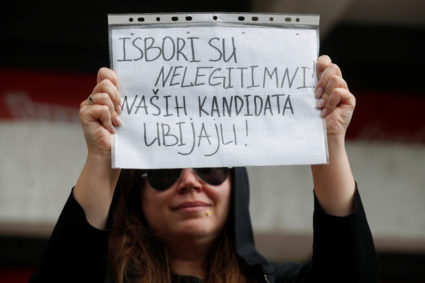 IŠBORI SU
NELEGITIMNI!
NAŠIH KANDIDATA
UBIJAJU!